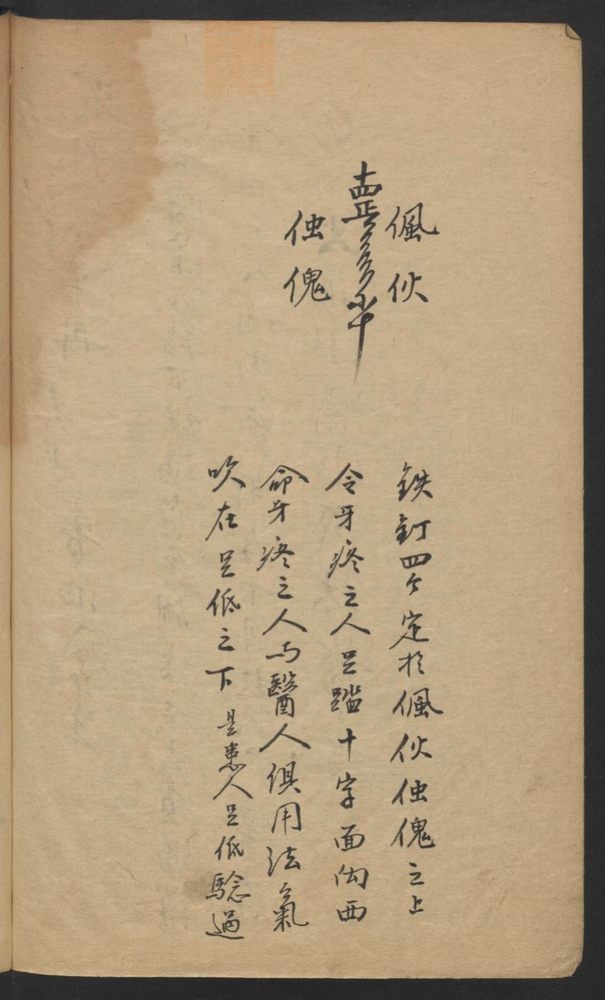 佩伙
伷傀
鉄釘四个定於佩伙伷傀之上
令牙疼之人足踏十字面向西
命牙疼之人与醫人俱用法氣
吹在足低之下是患人足低騐過